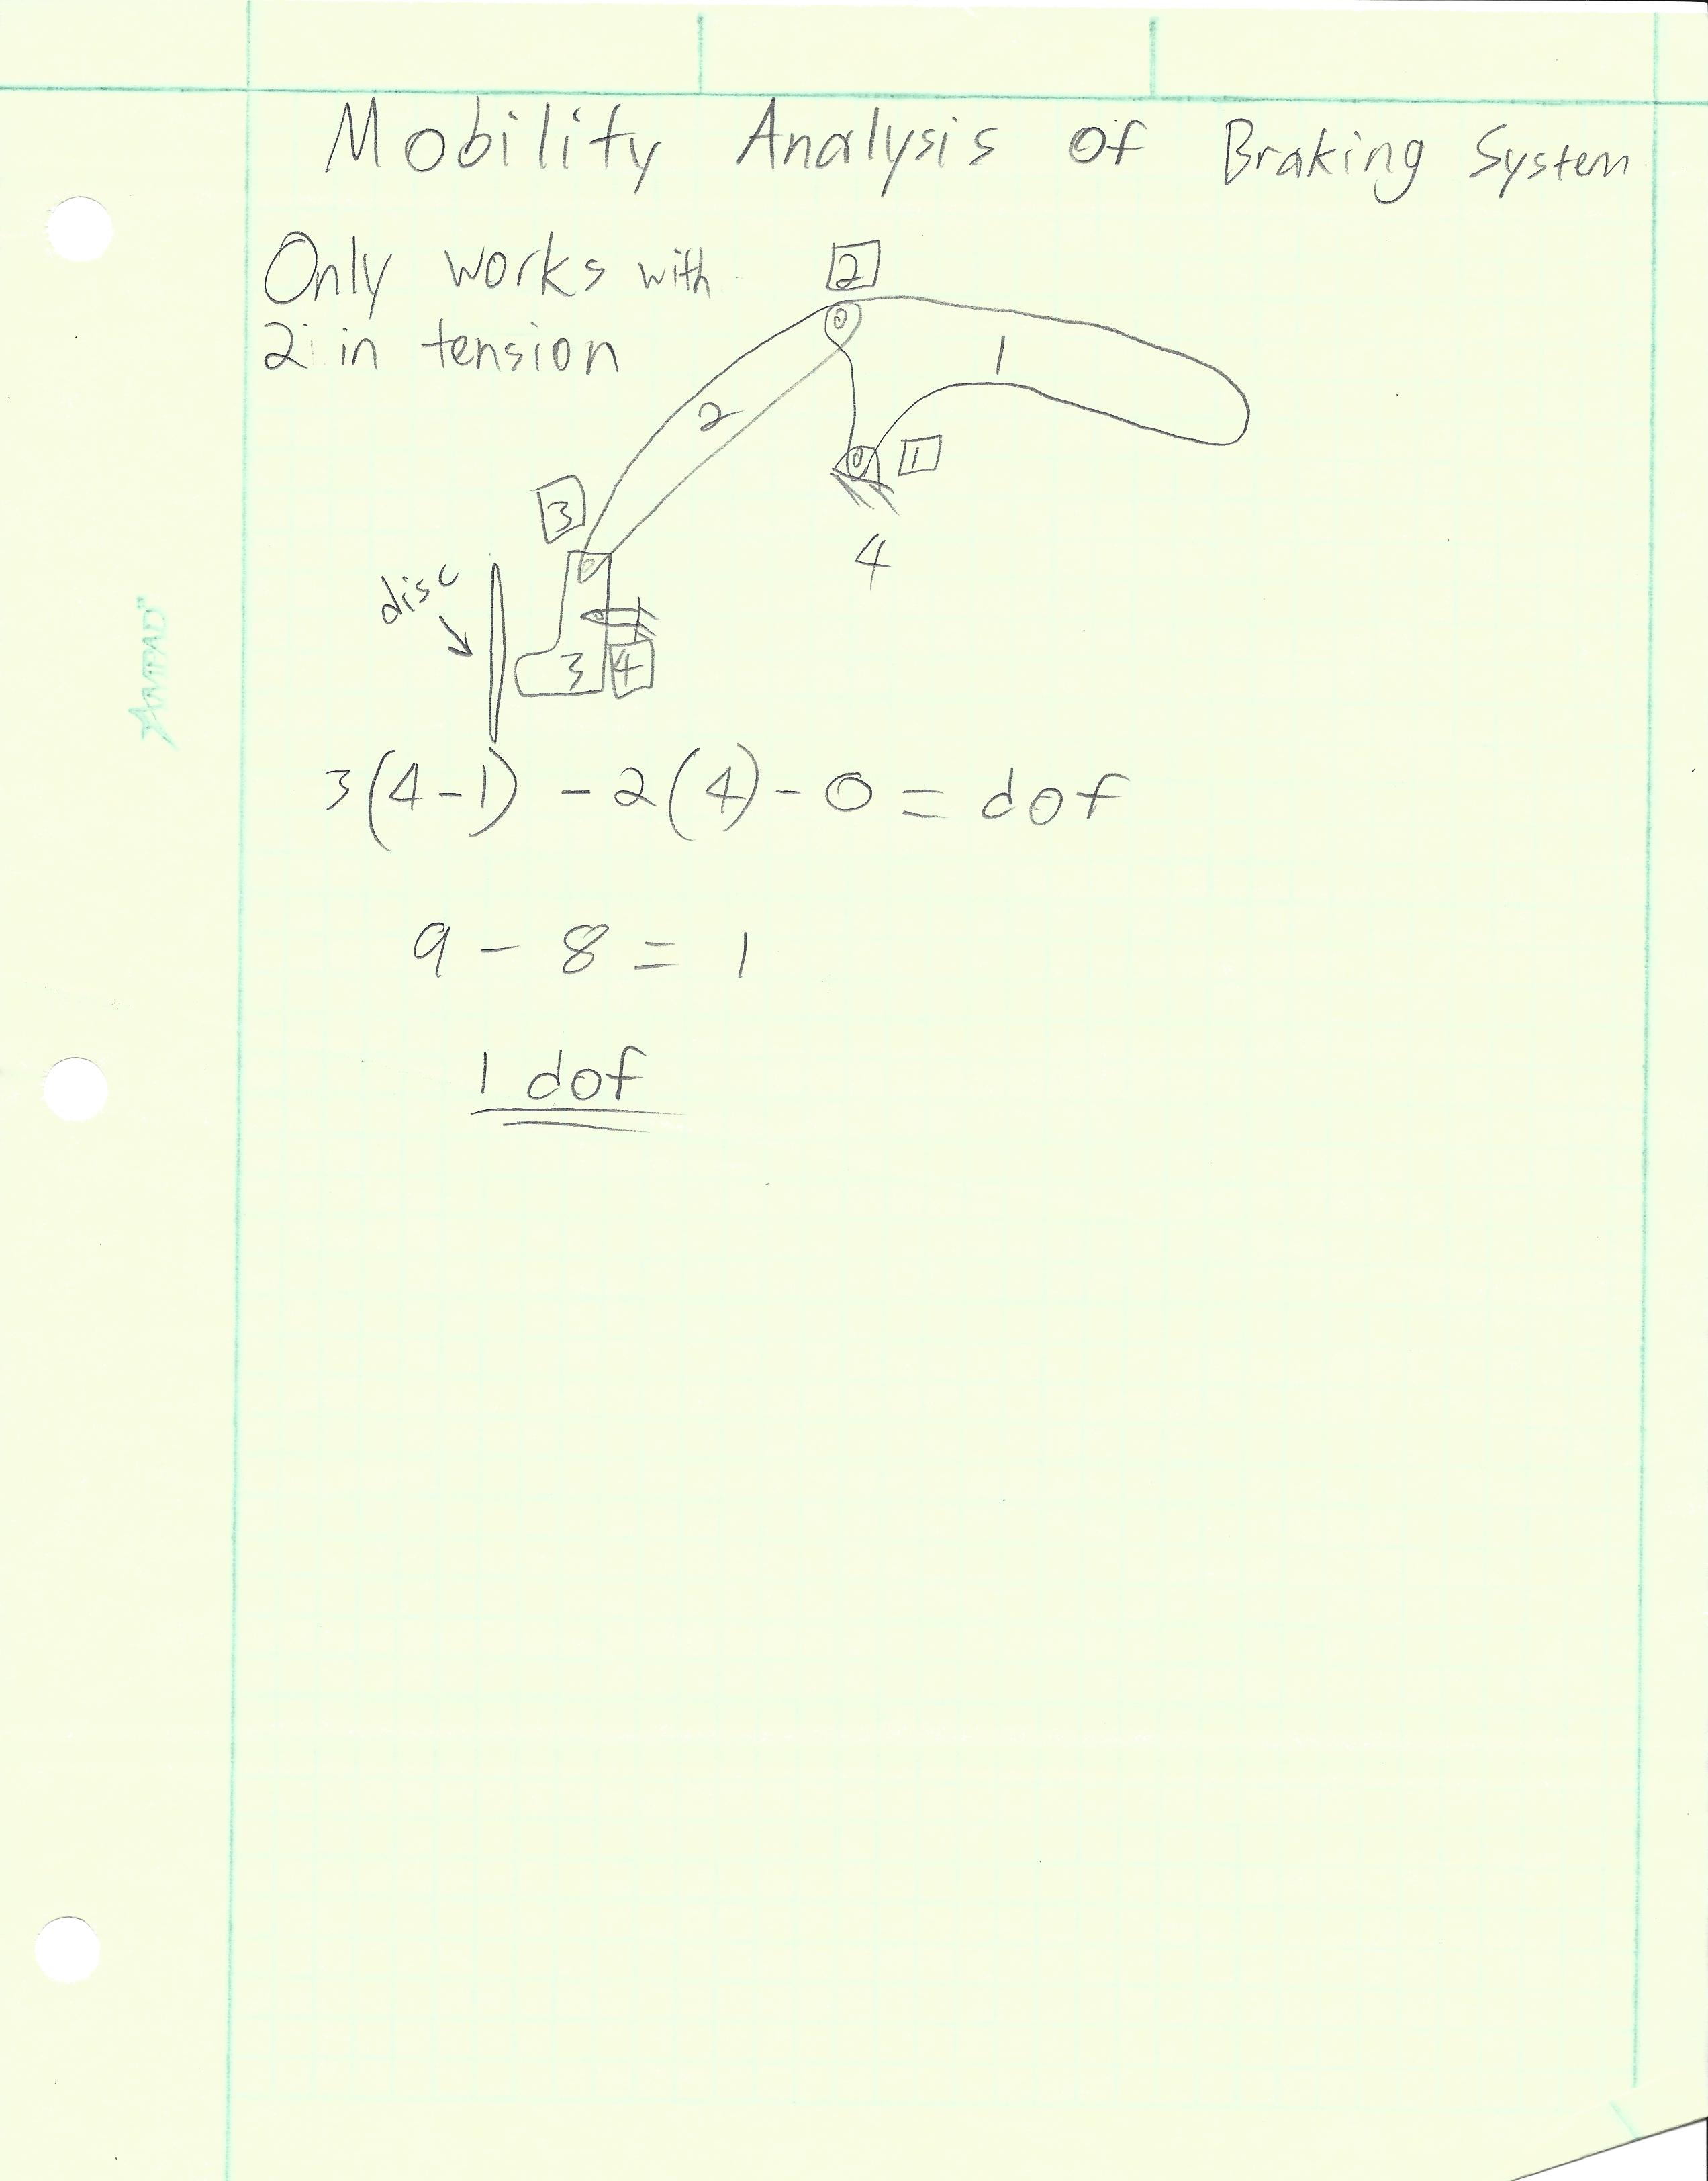 Mobility Analysis of Braking System
Only works with
2 in tension
[2]
1
2
[1]
[3]
4
disc
3 [4]
3(4-1) - 2(4) - 0 = dof
9 - 8 = 1
1 dof
AMPAD"